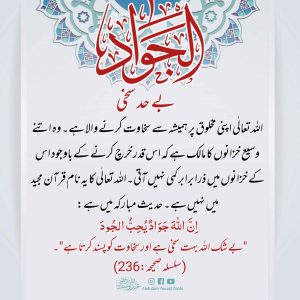 الجواد
بے حد سخی
اللہ تعالٰی اپنی مخلوق پر ہمیشہ سے سخاوت کرنے والا ہے۔ وہ اتنے
وسیع خزانوں کا مالک ہے کہ اس قدر خرچ کرنے کے باوجود اس
کے خزانوں میں ذرا برابر کمی نہیں آتی۔ اللہ تعالٰی کا یہ نام قرآن مجید
میں نہیں ہے۔ حدیث مبارکہ میں ہے:
اِنَّ اللّٰهَ جَوَادٌ يُحِبُّ الْجُودَ
"بے شک اللہ بہت سخی ہے اور سخاوت کو پسند کرتا ہے"۔
(سلسلہ صحیحہ:236)